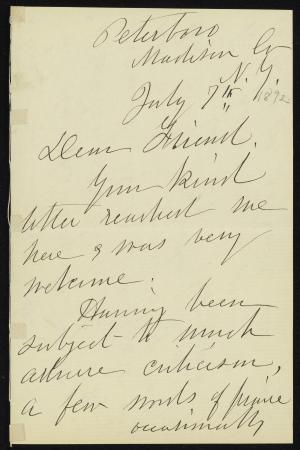 Peterboro
Madison Co
N. Y.
July 7th 1892
Dear Friend.
Your kind
letter reached me
here & was very
welcome.
Having been
subject to much
adverse criticism,
a few words of praise
occasionally